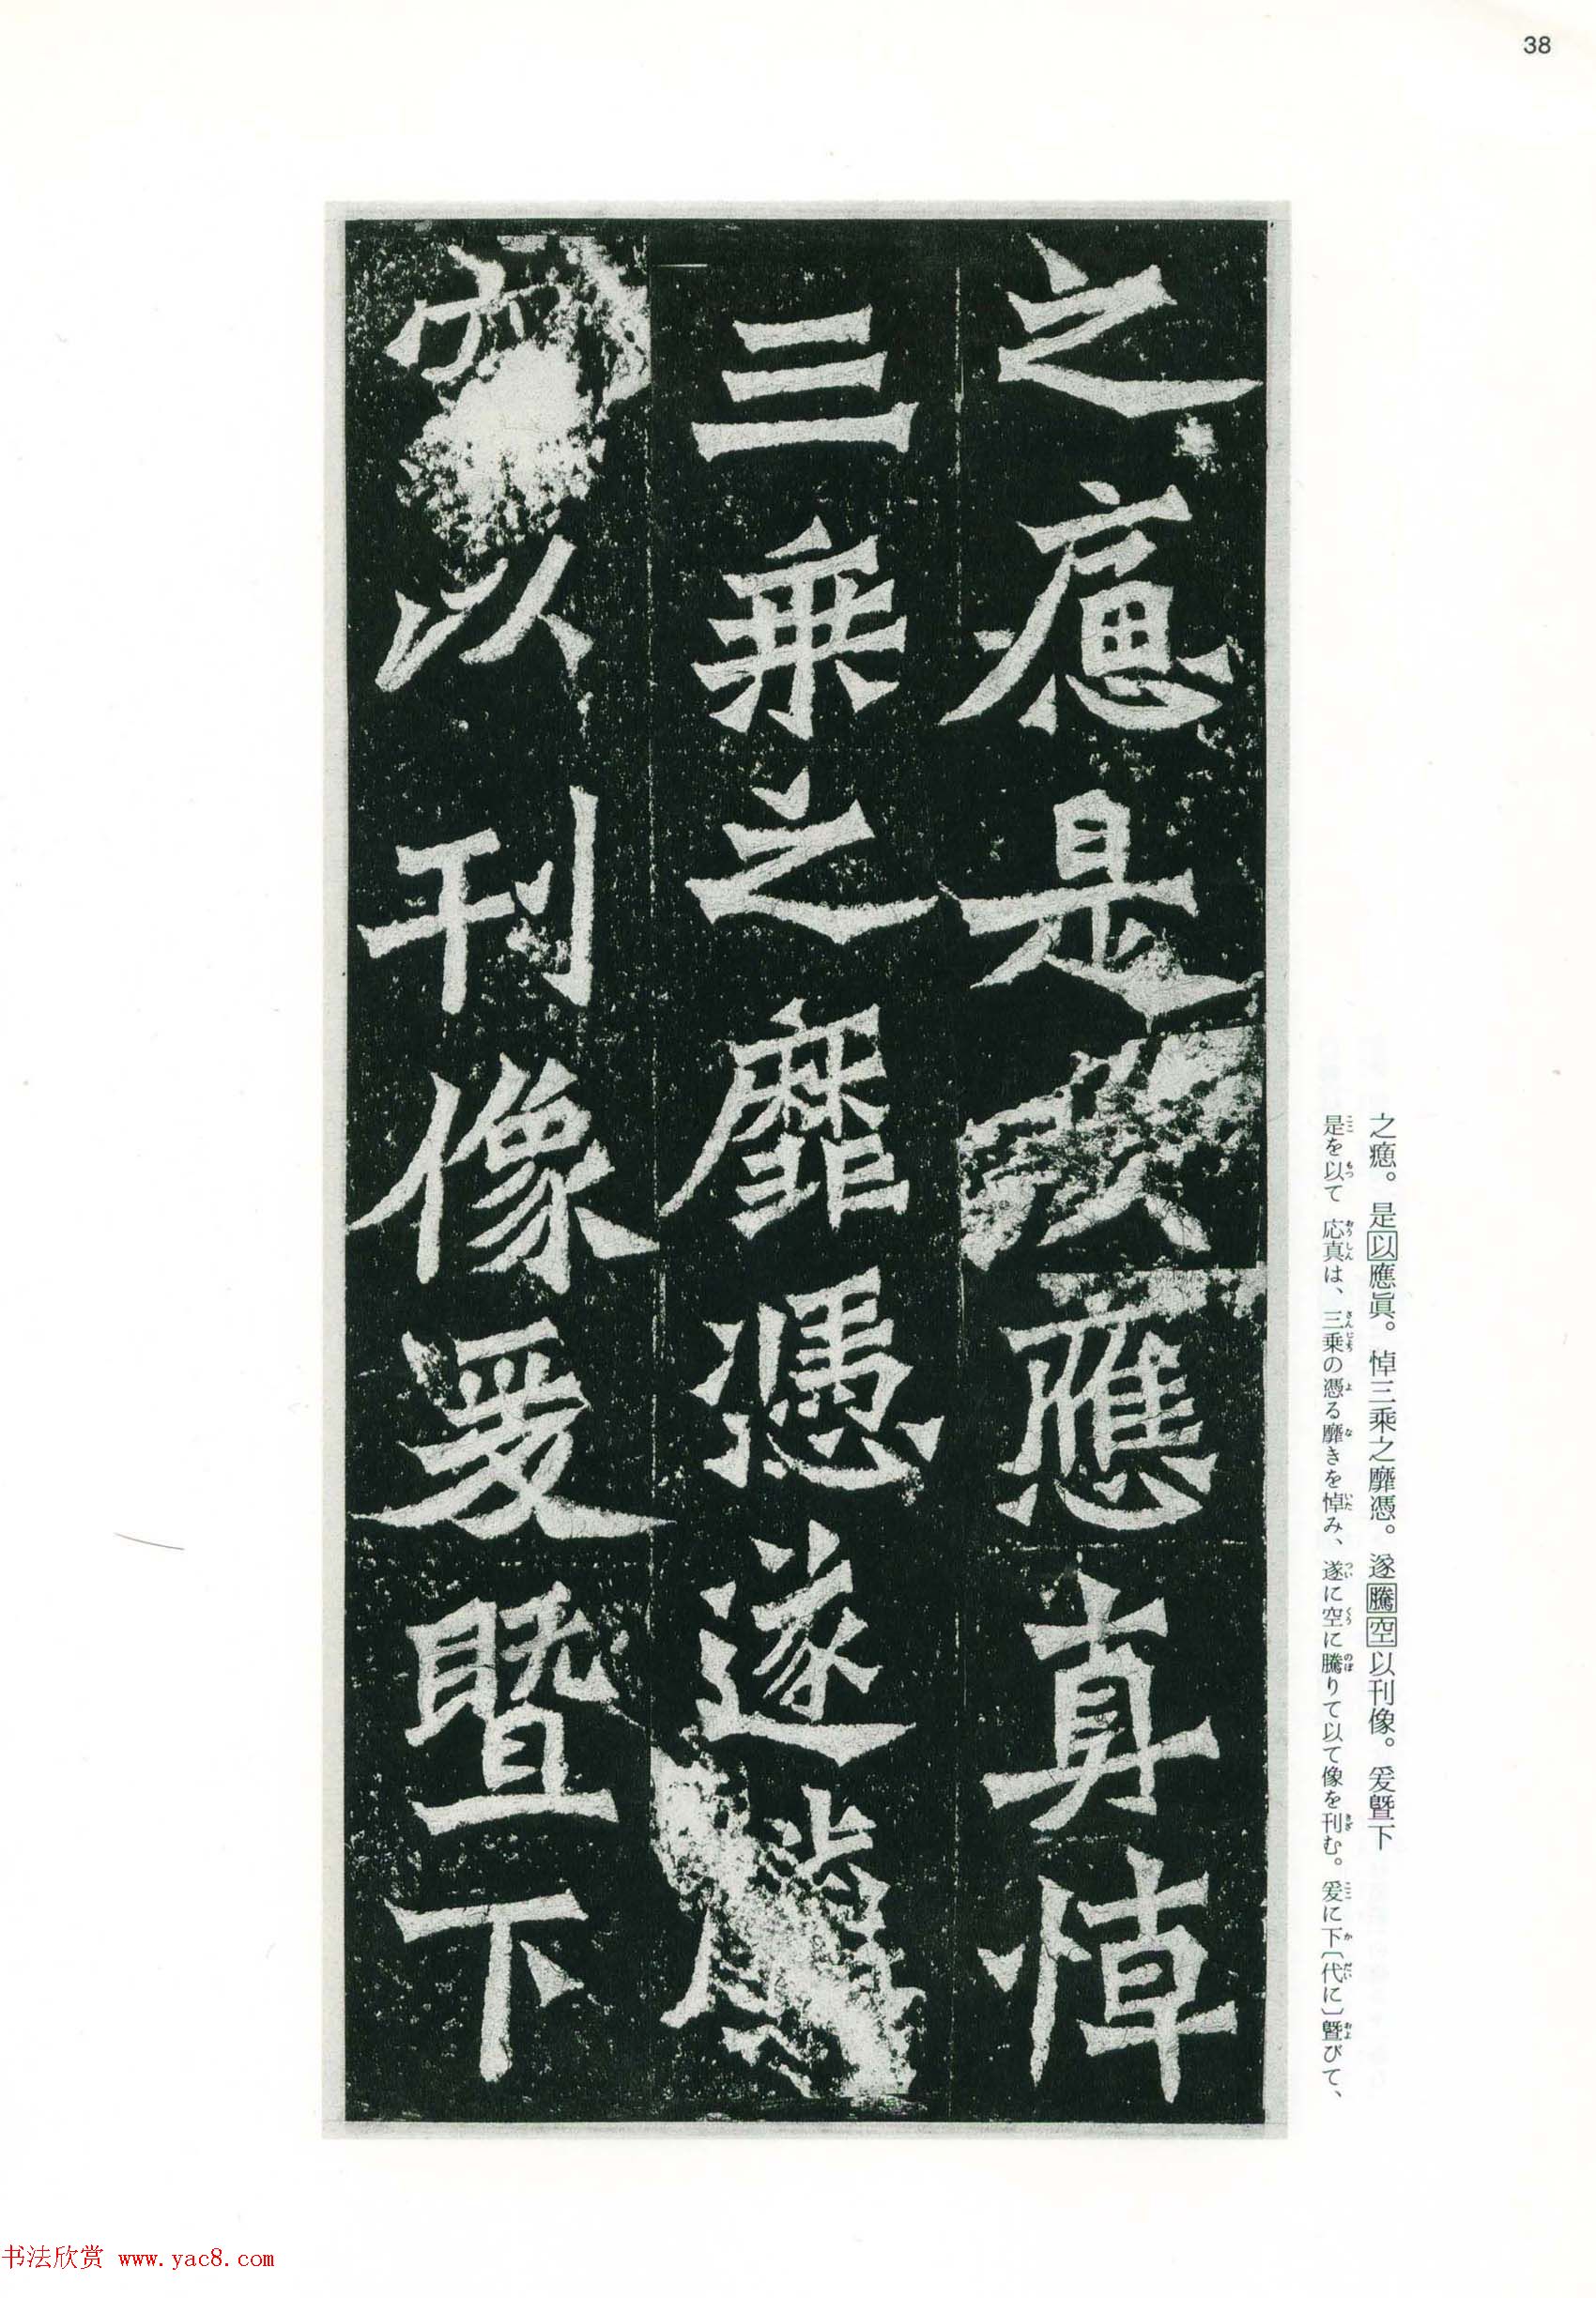 38
之瘛是以應真悼
三乘之靡憑遂騰
空以刊像爰暨下
之瘛。是以應眞。悼三乘之靡憑。遂騰空以刊像。爰曁下
是を以て応真は、三乗の憑る靡きを悼み、遂に空に騰りて以て像を刊む。爰に下〔代に〕曁びて、
书法欣赏 www.yac8.com